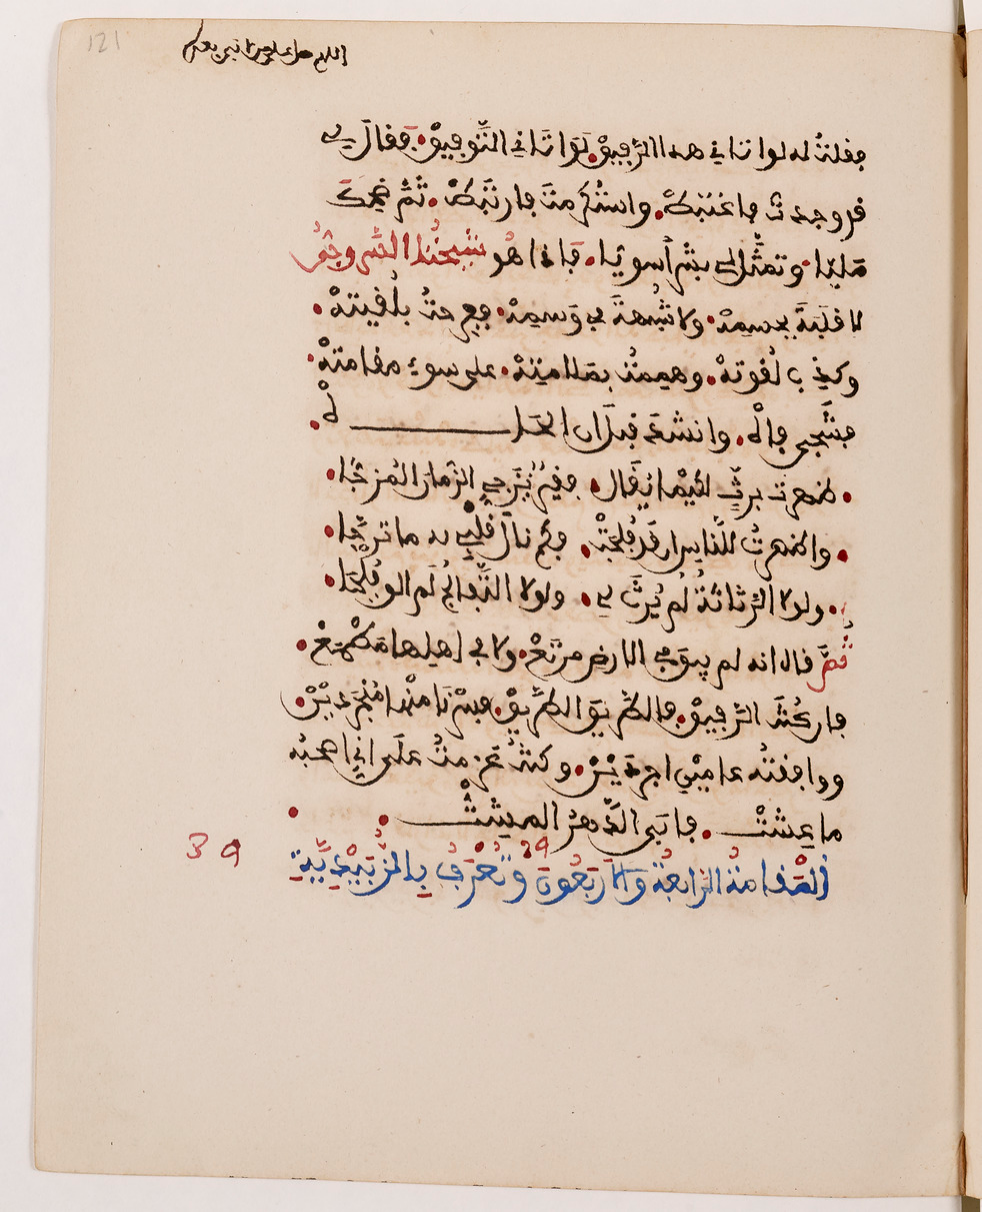 121
اللهم صل على
فقلت له لو اتاني هذا الرفيق. لواتاني التوفيق. فقال لي
قد وجدت فاغتبط. واستكرمت فارتبط. ثم ضحك
مليا. وتمثل لي بشرا سويا. فاذا هو شيخنا السروجي
لا قلبة بجسمه. ولا شبهة في وسمه. ففرحت بلقيته
وكذب لقوته. وهممت بملامته. على سوء مقامته
فشحى فاه. وانشد قبل ان الحاه
ظهرت برث لكيما يقال. فقير يزجي الزمان المزجا
واظهرت للناس ان قد فلجت. فكم نال قلبي به ما ترجا
ولولا الرثاثة لم يرث لي. ولولا التفالج لم الق فلجا
ثم قال انه لم يبق لي الارض مرتع. ولا في اهلها مطمع
فان كنت الرفيق. فالطريق الطريق. فسرنا منها منجردين
ورافقته عامين اجردين. وكنت عزمت على ان اصحبه
ما عشت. فابى الدهر المشت
المقامة الرابعة والاربعون وتعرف بالزبيدية
34